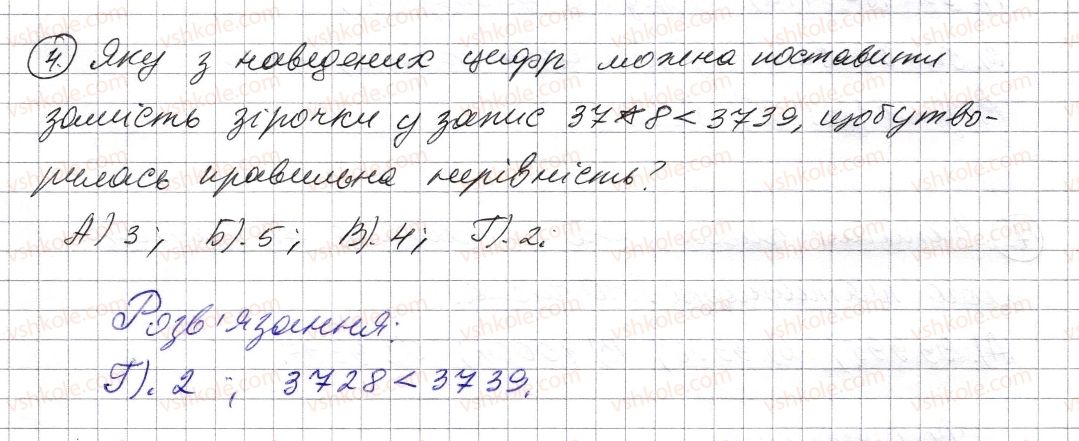 4. Яку з наведених цифр можна поставити
замість зірочки у запис 37*8 < 3739, щоб утво-
рилась правильна нерівність?
А) 3; Б). 5; В). 4; Г). 2.
Розв'язання:
Г). 2 ; 3728 < 3739.